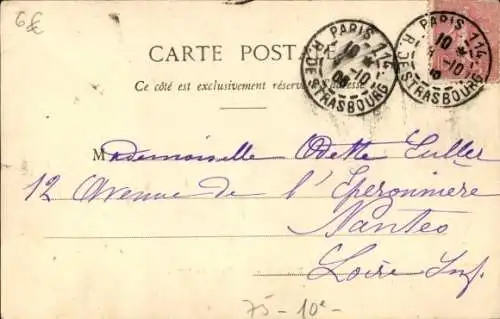 6€
CARTE POSTALE
Ce côté est exclusivement réservé à l'adresse
PARIS 114
R. DE STRASBOURG
10 *
10
PARIS 114
R. DE STRASBOURG
10 *
10
Mademoiselle Odette
12 Avenue de l'Eperonniere
Nantes
Loire Inf.
75 - 10e -